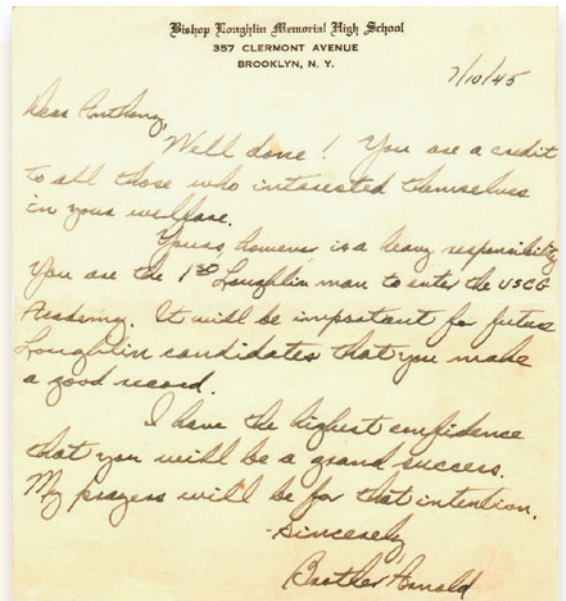 Bishop Loughlin Memorial High School
357 CLERMONT AVENUE
BROOKLYN, N. Y.
7/10/45
Dear Anthony,
Well done! You are a credit
to all those who interested themselves
in your welfare.
Yours, however, is a heavy responsibility
You are the 1st Loughlin man to enter the USCG
Academy. It will be important for future
Loughlin candidates that you make
a good record.
I have the highest confidence
that you will be a grand success.
My prayers will be for that intention.
-Sincerely,
Brother Arnold